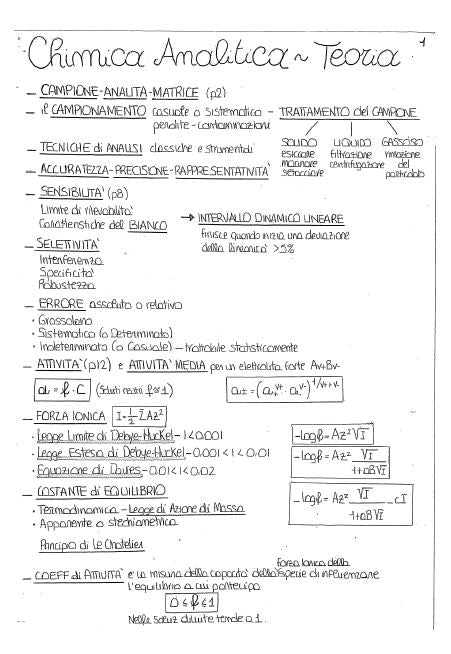 1
Chimica Analitica ~ Teoria
- CAMPIONE-ANALITA-MATRICE (p2)
- il CAMPIONAMENTO casuale o sistematico - TRATTAMENTO del CAMPIONE
perdite-contaminazioni
SOLIDO LIQUIDO GASSOSO
essiccare filtrazione rimozione
macinare centrifugazione del
setacciare particolato
- TECNICHE di ANALISI classiche e strumentali
- ACCURATEZZA-PRECISIONE-RAPPRESENTATIVITÀ
- SENSIBILITÀ (p8)
Limite di rilevabilità
Caratteristiche del BIANCO → INTERVALLO DINAMICO LINEARE
finisce quando inizia una deviazione
dalla linearità >5%
- SELETTIVITÀ
Interferenza
Specificità
Robustezza
- ERRORE assoluto o relativo
• Grossolano
• Sistematico (o Determinato)
• Indeterminato (o Casuale) - trattabile statisticamente
- ATTIVITÀ (p12) e ATTIVITÀ MEDIA per un elettrolita forte Av+Bv-
a = f · C (Soluti neutri f≅1) a± = (a+^v+ · a-^v-)^1/v++v-
- FORZA IONICA I=1/2 Σ Az²
• Legge Limite di Debye-Huckel - I<0.001 -logf = Az²√I
• Legge Estesa di Debye-Huckel - 0.001<I<0.01 -logf = Az² √I / 1+aB√I
• Equazione di Davies - 0.01<I<0.02
- COSTANTE di EQUILIBRIO -logf = Az² √I / 1+aB√I - cI
• Termodinamica - Legge di Azione di Massa
• Apparente o stechiometrica
Principio di le Chatelier
- COEFF di ATTIVITÀ e' la misura della capacità della specie di influenzare
forza ionica della
l'equilibrio a cui partecipa
0 ≤ f ≤ 1
Nelle soluz diluite tende a 1.